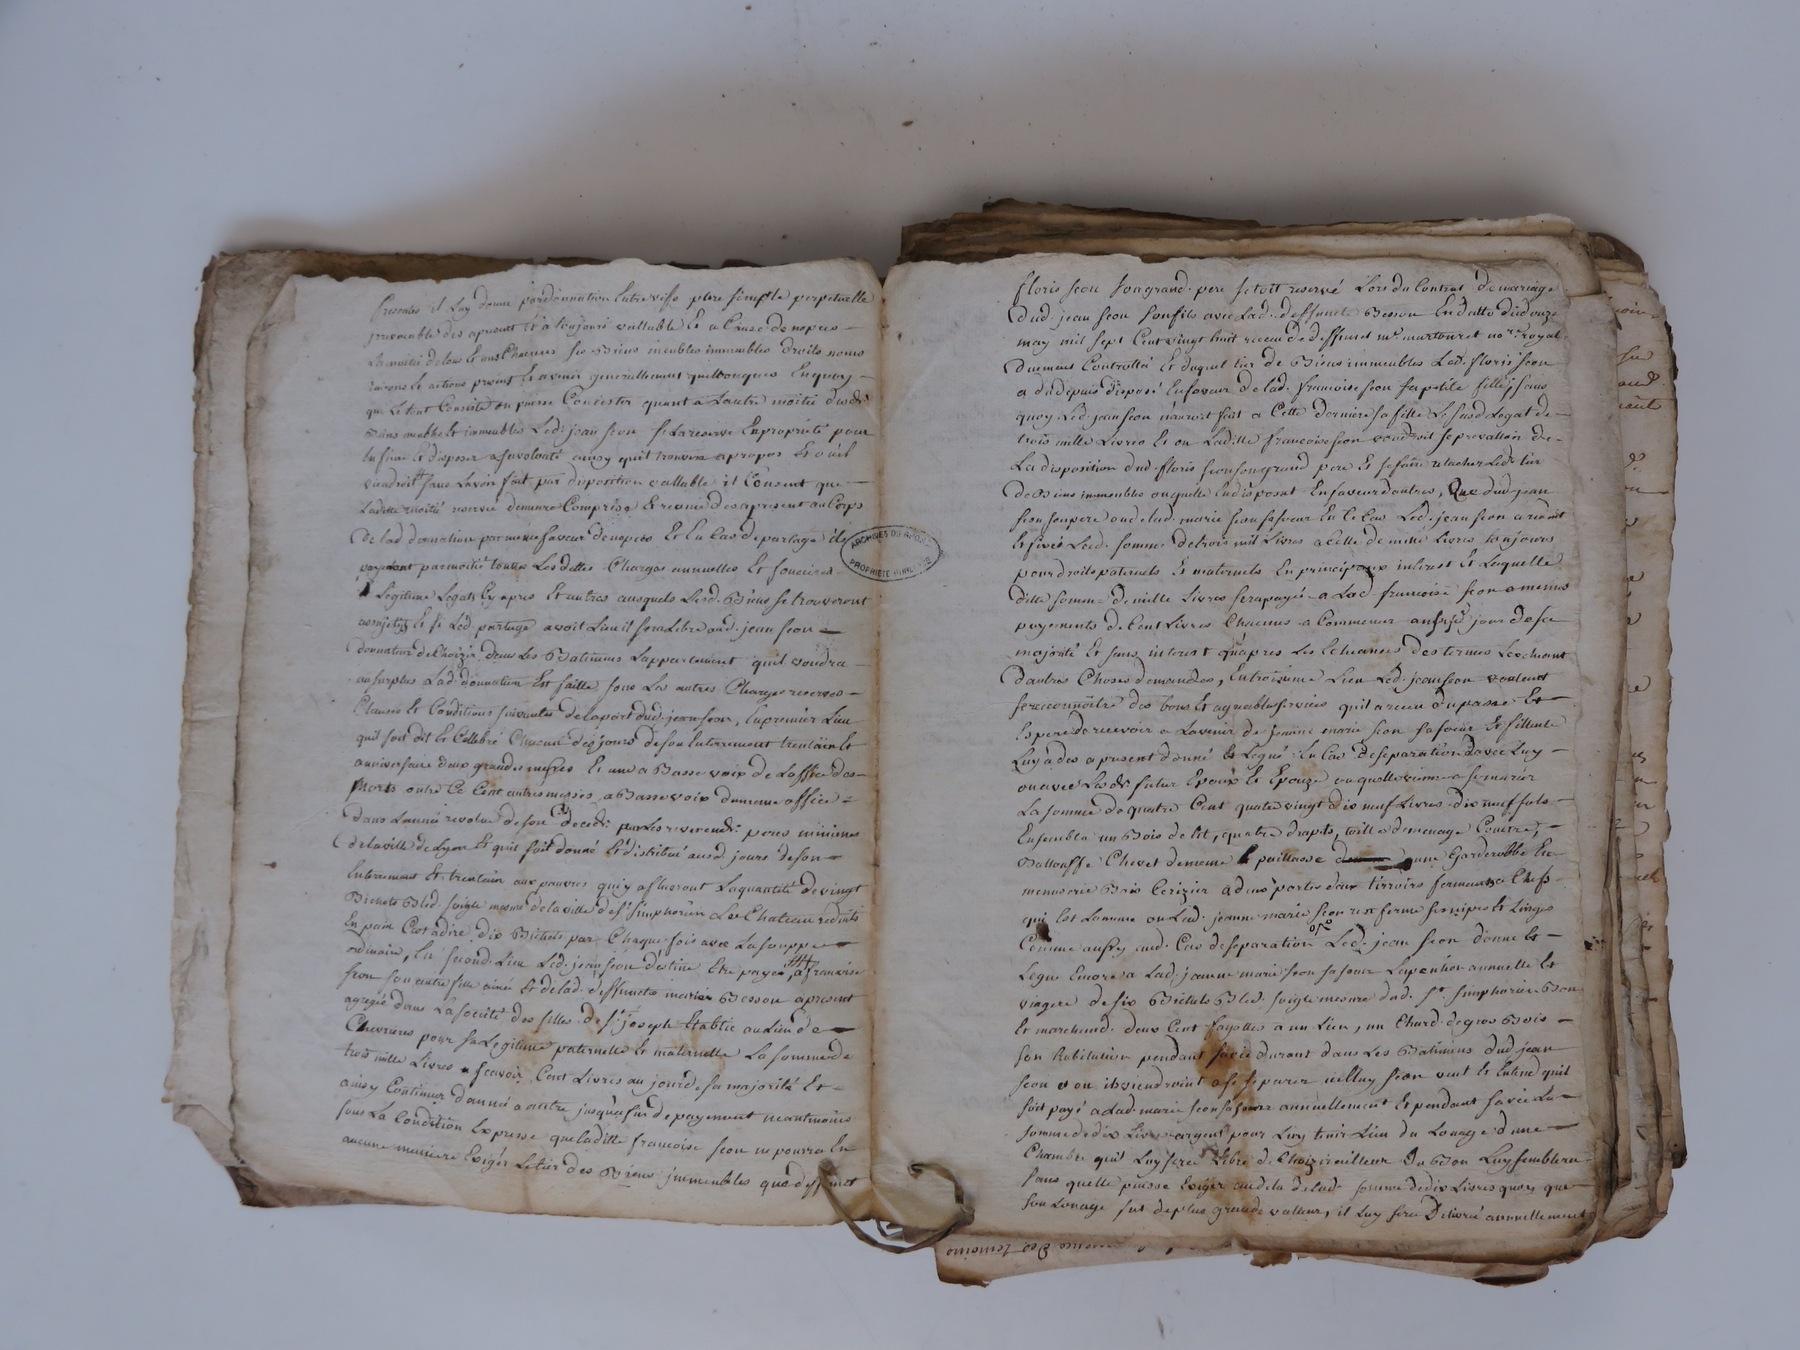 presentes il luy donne par donnation entre vifs pure simple perpetuelle
irrevocable des apresent et a toujours vallable et a cause de nopces
la moitié de tous et uns chacuns ses Biens meubles immeubles droits noms
raisons et actions presents et avenir generallement quelconques en quoy
que le tout consiste ou puisse consister quant a lautre moitié desdts
Biens meubles et immeubles led. jean seon se la reserve en propriété pour
en jouir et disposer a sa volonté ainsy quil trouvera apropos et ou il
viendroit sans lavoir fait par disposition vallable il consent que
laditte moitié reservée demeure comprise et reunie des apresent au corps
de lad donnation par meme faveur de nopces et en cas de partage ils
payeront par moitié toutes les dettes charges annuelles et foncieres
legitime legats cy apres et autres ausquels lesd. Biens se trouveront
assujetis et si led. partage avoit lieu il sera libre aud. jean seon
donnateur de choizir dans les Batimens lappartement quil voudra
au surplus lad. donnation est faitte sous les autres charges reserves
clauses et conditions suivantes de la part dud. jean seon, en premier lieu
quil soit dit et cellebré chacun des jours de son enterrement trentain et
anniversaire deux grandes messes et une a Basse voix de loffice des
Morts outre ce cent autres messes a Basse voix du meme office
dans lannée revolue de son decedz par les reverends peres minimes
de la ville de Lyon et quil soit donné et distribué ausd. jours de son
enterrement et trentain aux pauvres qui y aflueront la quantité de vingt
Bichets Bled seigle mesure de la ville de st simphorin le chateau reduits
en pain cest adire dix Bichets par chaque fois avec la souppe
ordinaire, en second lieu led. jean seon destine etre payé a francoise
seon son autre fille ainée et de lad. deffuncte marie Besson apresent
agregée dans la societé des filles de st joseph etablie au lieu de
Chevrieres pour sa legitime paternelle et maternelle la somme de
trois mille livres a scavoir cent livres au jour de sa majorité et
ainsy continuer dannée a autre jusqua fin de payement neantmoins
sous la condition expresse que laditte francoise seon ne pourra en
aucune maniere exiger le tier des Biens immeubles que deffunct
floris seon son grand pere setoit reservé lors du contrat de mariage
dud. jean seon son fils avec lad. deffuncte Besson en datte du douze
may mil sept cent vingt huit receu de deffunct me martouret nore royal
duement controllé et duquel tier de Biens immeubles led. floris seon
a du depuis disposé en faveur de lad. francoise seon sa petite fille, sans
quoy led. jean seon nauroit fait a cette derniere sa fille le susd. legat de
trois mille livres et ou laditte francoise seon voudroit se prevalloir de
la disposition dud. floris seon son grand pere et se faire relacher led. tier
de Biens immeubles ou quelle en disposat en faveur dautres, que dud. jean
seon son pere ou de lad. marie seon sa soeur en ce cas led. jean seon a reduit
et fixé lad. somme de trois mil livres a celle de mille livres toujours
pour droits paternels et maternels en principaux interest et laquelle
ditte somme de mille livres sera payée a lad. francoise seon a memes
payements de cent livres chacuns a commencer ausd. jour de sa
majorité et sans interest qu'apres les echeances des termes lexcluant
dautres choses demandes, en troisieme lieu led. jean seon voulant
se reconnoitre des bons et agreables services quil a receu du passé et
espere de recevoir a lavenir de jeanne marie seon sa soeur et filleule
luy a des apresent donné et legué en cas de separation davec luy
ou avec lesdts futur Epoux et Epouze ou quelle vienne a se marier
la somme de quatre cent quatre vingt dix neuf livres dix neuf sols
ensemble un Bois de lit, quatre draps, toille de menage couttre,
Ballouffe chevet de meme et paillasse une Garderobbe en
menuserie Bois cerizier a deux portes deux tirroirs fermant a clefs
qui est la meme ou lad. jeanne marie seon renferme ses nipes et linges
comme aussy aud. cas de separation led. jean seon donne et
legue encore a lad. jeanne marie seon sa soeur la pention annuelle et
viagere de six Bichets Bled seigle mesure dud. st simphorin Bon
et marchand deux cent fayottes a un lien, un chard de gros Bois
son habitation pendant sa vie durant dans les Batimens dud. jean
seon et ou ils viendroient a se separer icelluy seon veut et entend quil
soit payé a lad. marie seon sa soeur annuellement et pendant sa vie la
somme de dix livres argent pour luy tenir lieu du louage dune
chambre quil luy sera libre de choizir ailleurs ou Bon luy semblera
sans quelle puisse exiger audela de lad. somme de dix livres quoy que
son louage fut de plus grande valleur, il luy sera delivré annuellement
ARCHIVES DU RHÔNE
PROPRIÉTÉ PUBLIQUE